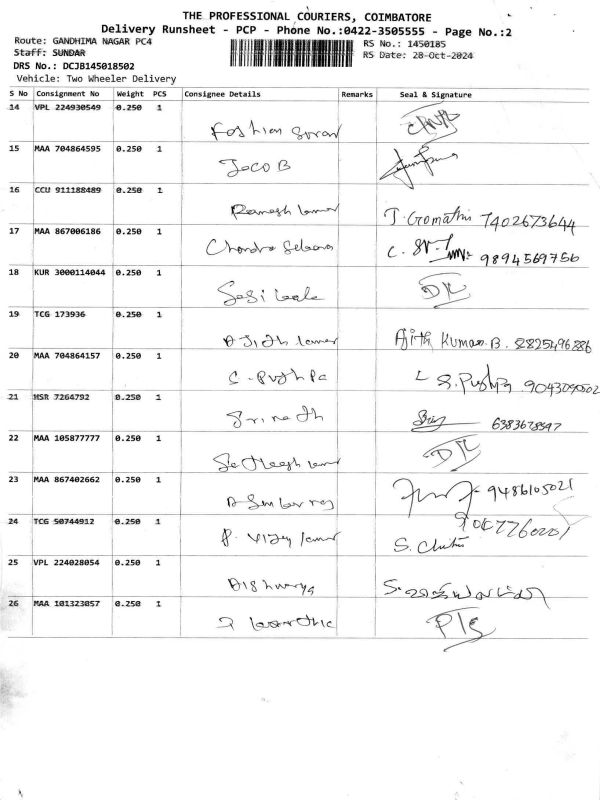 THE PROFESSIONAL COURIERS, COIMBATORE
Delivery Runsheet - PCP - Phone No.:0422-3505555 - Page No.:2
Route: GANDHIMA NAGAR PC4 RS No.: 1450185
Staff: SUNDAR RS Date: 28-Oct-2024
DRS No.: DCJB145018502
Vehicle: Two Wheeler Delivery
S No Consignment No Weight PCS Consignee Details Remarks Seal & Signature
14 VPL 224930549 0.250 1
Fashion
15 MAA 704864595 0.250 1
Jeco B
16 CCU 911188489 0.250 1
Ramesh kumar J. Gomathi 7402673644
17 MAA 867006186 0.250 1
Chandra C. 9894569756
18 KUR 3000114044 0.250 1
Sasi kala DL
19 TCG 173936 0.250 1
Ajith kumar Ajith Kumar B.
20 MAA 704864157 0.250 1
C. Pushpa S. Pushpa
21 HSR 7264792 0.250 1
Srinath
22 MAA 105877777 0.250 1
Satheesh kumar DL
23 MAA 867402662 0.250 1
9486105021
24 TCG 50744912 0.250 1
P. Vijay kumar S. Chitra
25 VPL 224028054 0.250 1
Aishwarya
26 MAA 101323057 0.250 1